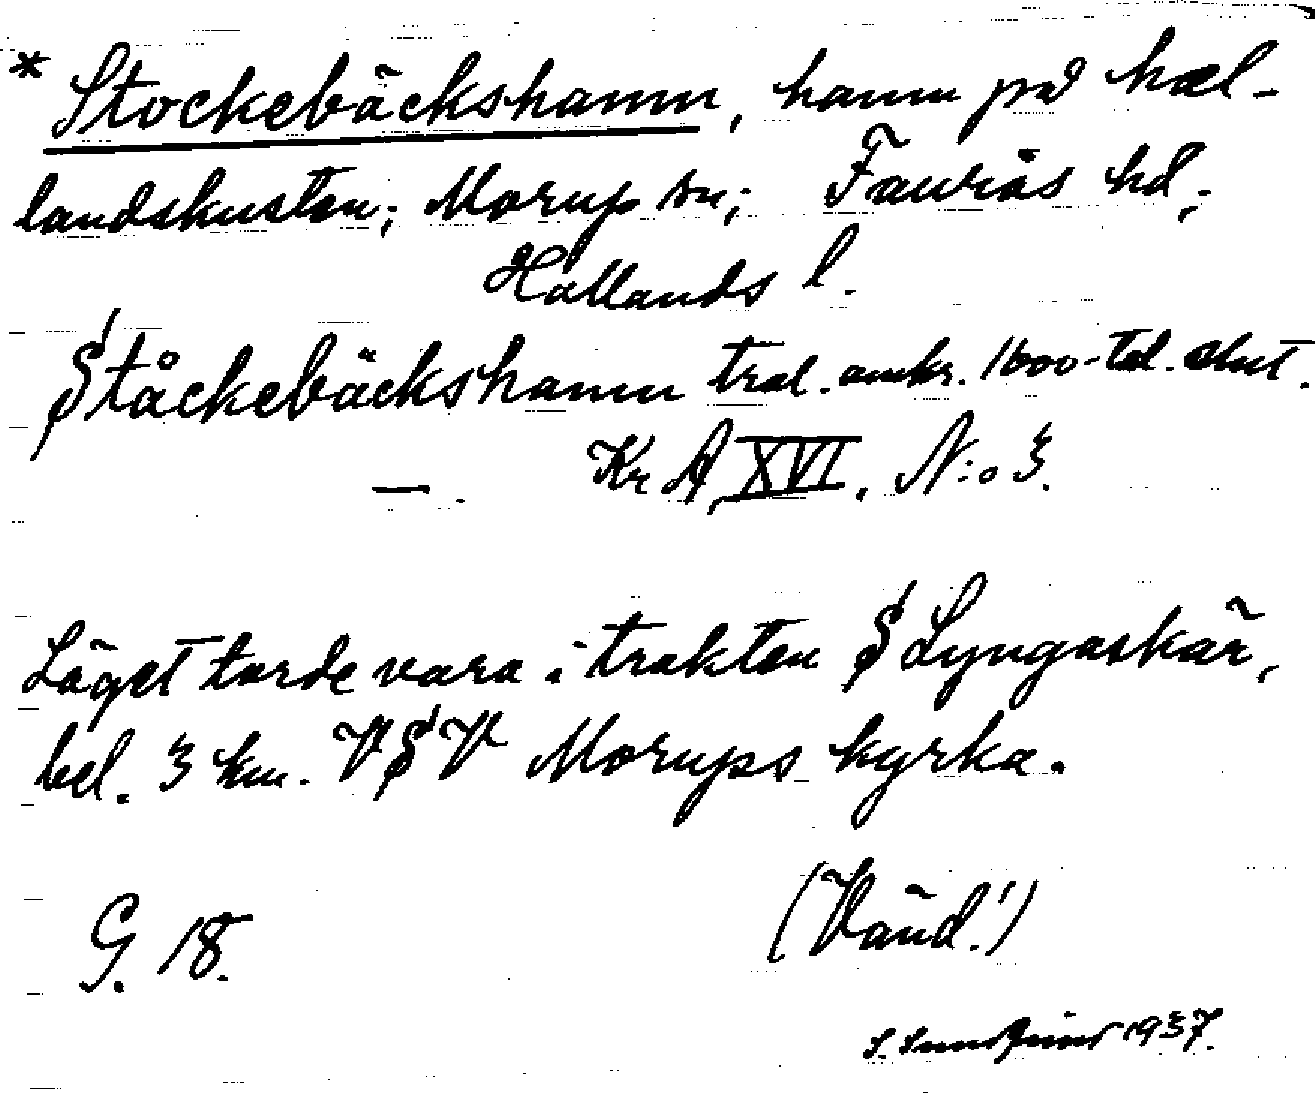 * Stockebäckshamn, hamn på hal-
landskusten; Morup sn; Faurås hd;
Hallands l.
Ståckebäckshamn trol. omkr. 1600-tal. slut.
— . Kr A, XVI, N:o 3.
Läget torde vara i trakten av Lyngaskär,
bel. 3 km. VSV Morups kyrka.
G. 18. (Vänd!)
1937.